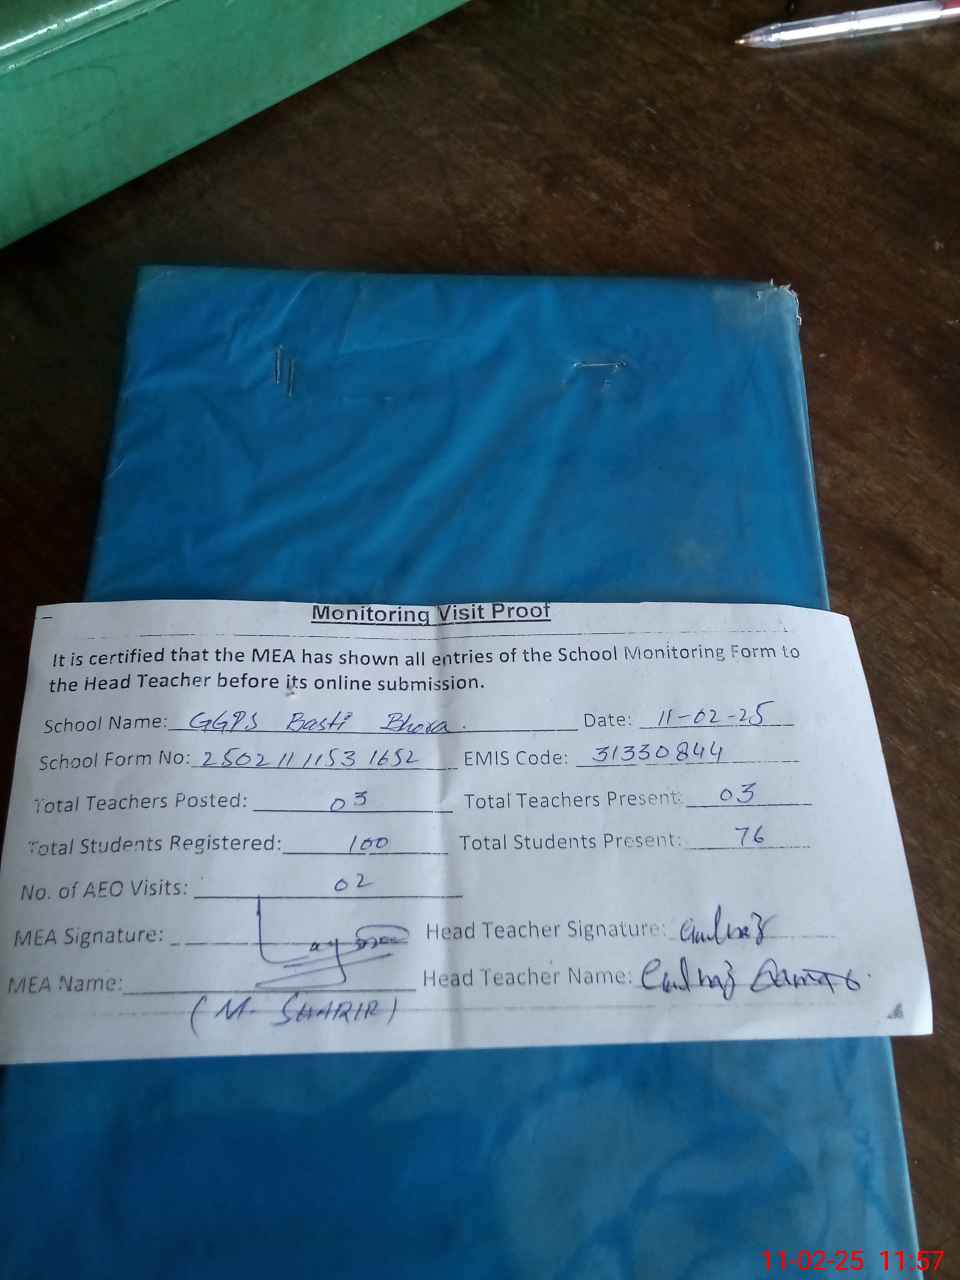 Monitoring Visit Proof
It is certified that the MEA has shown all entries of the School Monitoring Form to
the Head Teacher before its online submission.
School Name: GGPS Basti Bhora. Date: 11-02-25
School Form No: 2502111153 1652 EMIS Code: 31330844
Total Teachers Posted: 03 Total Teachers Present: 03
Total Students Registered: 100 Total Students Present: 76
No. of AEO Visits: 02
MEA Signature: Head Teacher Signature:
MEA Name: Head Teacher Name:
(M.
11-02-25 11:57